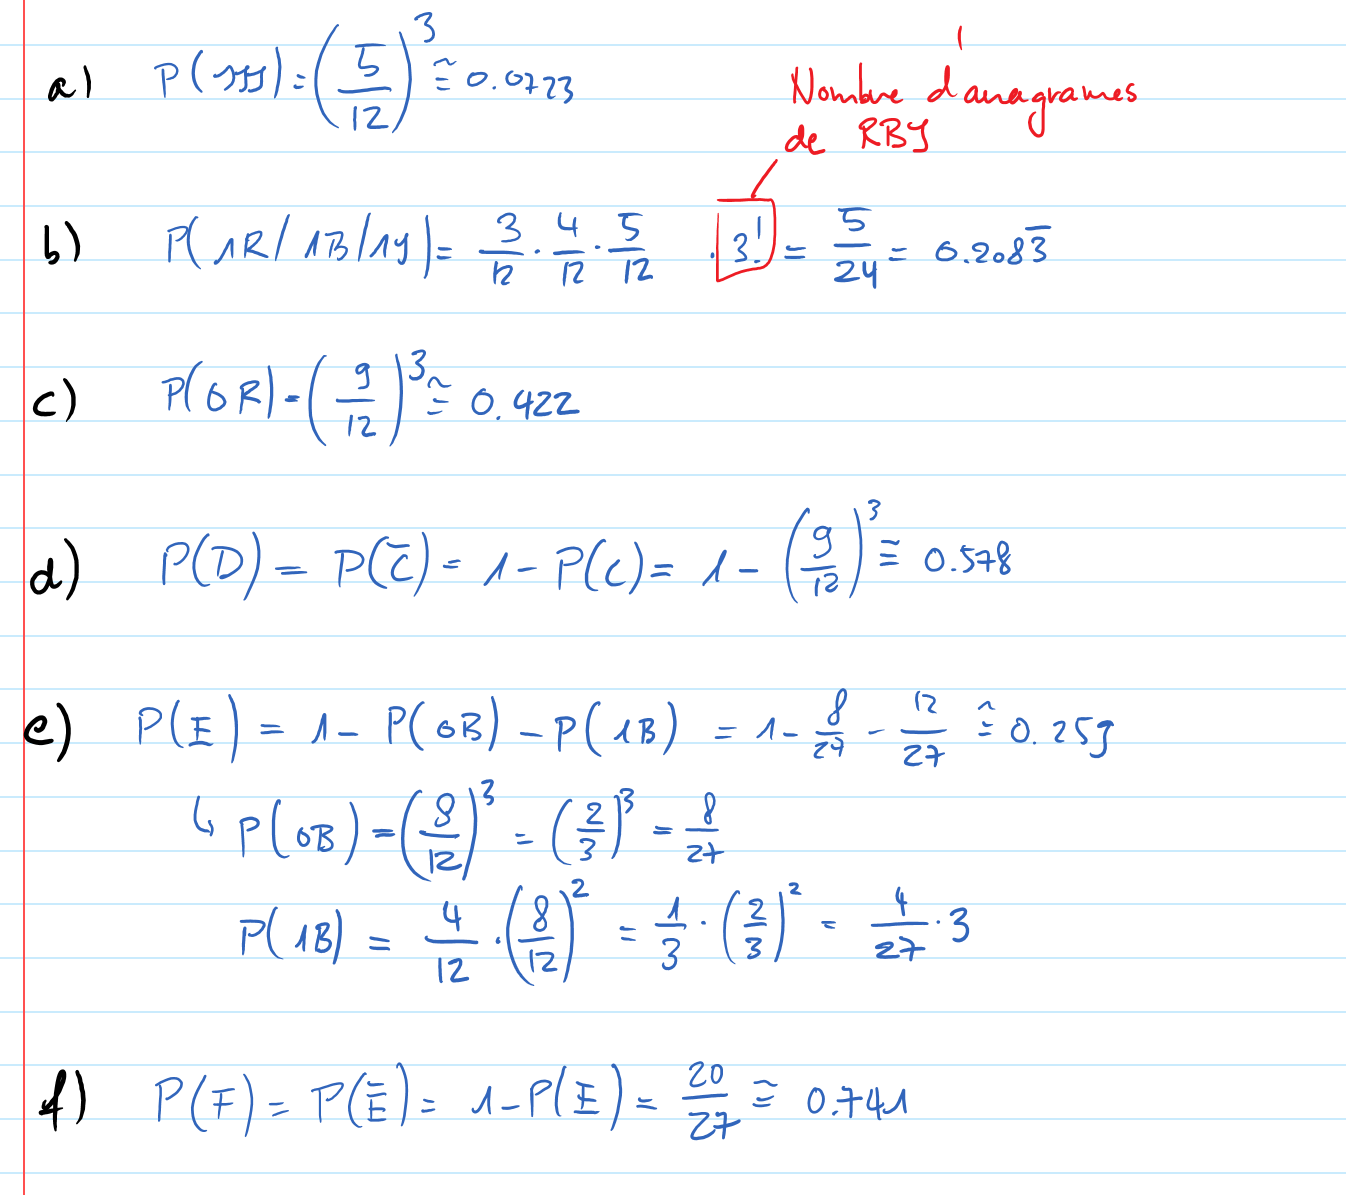 a) P(JJJ) = (5/12)^3 ≅ 0.0723
Nombre d'anagrames
de RBJ
b) P(1R/1B/1J) = 3/12 · 4/12 · 5/12 · 3! = 5/24 = 0.2083̅
c) P(0R) = (9/12)^3 ≅ 0.422
d) P(D) = P(C̅) = 1 - P(C) = 1 - (9/12)^3 ≅ 0.578
e) P(E) = 1 - P(0B) - P(1B) = 1 - 8/27 - 12/27 ≅ 0.259
↳ P(0B) = (8/12)^3 = (2/3)^3 = 8/27
P(1B) = 4/12 · (8/12)^2 = 1/3 · (2/3)^2 = 4/27 · 3
f) P(F) = P(E̅) = 1 - P(E) = 20/27 ≅ 0.741